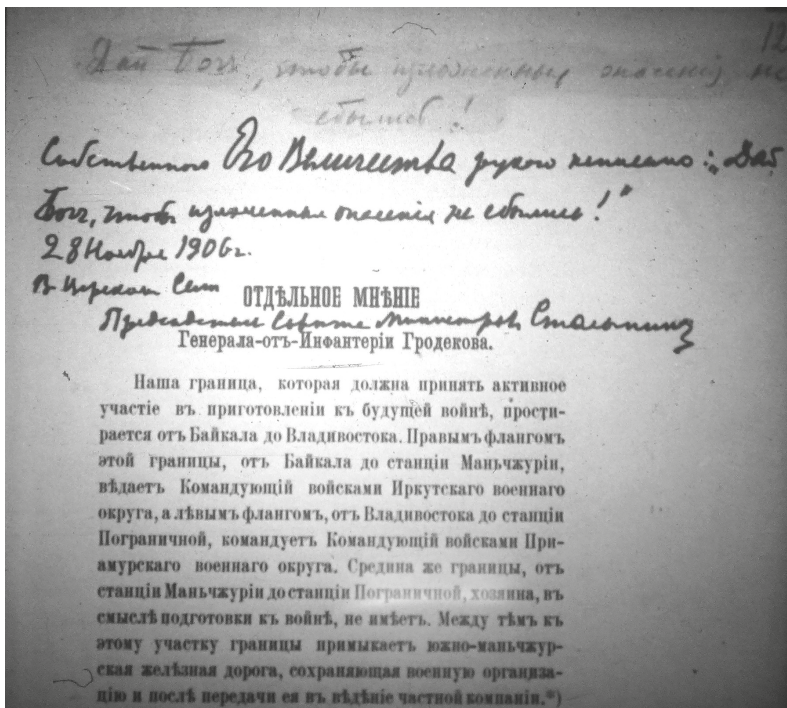 12
Дай Богъ, чтобы изложенныя опасенія не
сбылись!
Собственною Его Величества рукою написано: „Дай
Богъ, чтобы изложенныя опасенія не сбылись!"
28 Ноября 1906 г.
В Царском Селе
ОТДѢЛЬНОЕ МНѢНІЕ
Председатель Совета Министров Столыпинъ
Генерала-отъ-Инфантеріи Гродекова.
Наша граница, которая должна принять активное
участіе въ приготовленіи къ будущей войнѣ, прости-
рается отъ Байкала до Владивостока. Правымъ флангомъ
этой границы, отъ Байкала до станціи Маньчжуріи,
вѣдаетъ Командующій войсками Иркутскаго военнаго
округа, а лѣвымъ флангомъ, отъ Владивостока до станціи
Пограничной, командуетъ Командующій войсками При-
амурскаго военнаго округа. Средина же границы, отъ
станціи Маньчжуріи до станціи Пограничной, хозяина, въ
смыслѣ подготовки къ войнѣ, не имѣетъ. Между тѣмъ къ
этому участку границы примыкаетъ южно-маньчжур-
ская желѣзная дорога, сохраняющая военную организа-
цію и послѣ передачи ея въ вѣдѣніе частной компаніи.*)